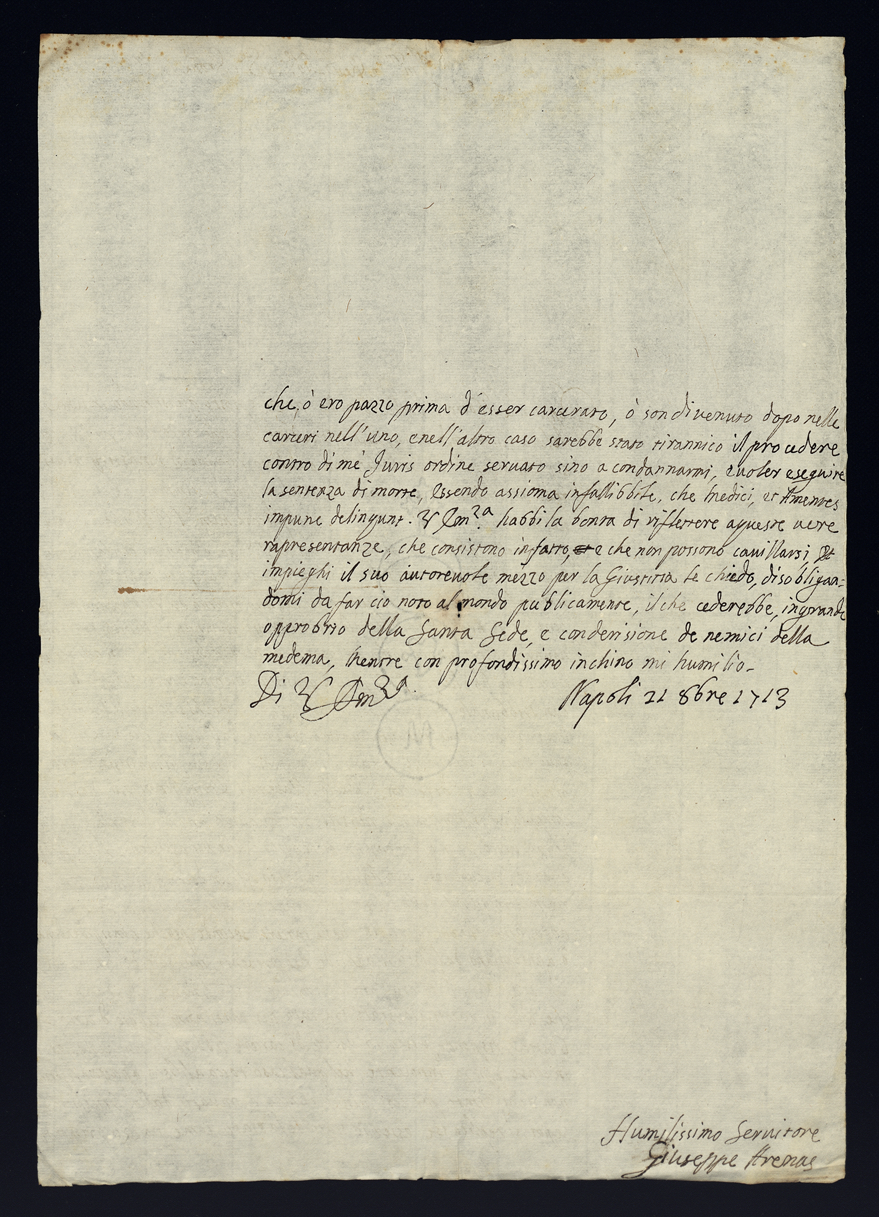 che, ò ero pazzo prima d'esser carcerato, ò son divenuto dopo nelle
carceri nell'uno, e nell'altro caso sarebbe stato tirannico il procedere
contro di mé Juris ordine servato sino a condannarmi, e voler eseguire
la sentenza di morte, essendo assioma infallibbile, che Medici, et Amentes
impune delingunt. V Em.za habbi la bontà di riflettere a queste vere
rapresentanze, che consistono in fatto, e che non possono cavillarsi et
impieghi il suo autorevole mezzo per la Giustitia le chiedo, disobligan=
domi da far ciò noto al mondo publicamente, il che cederebbe, in grande
opprobrio della Santa Sede, e con derisione de nemici della
medema, Mentre con profondissimo inchino mi humilio-
Di V Em.za Napoli 21 8bre 1713
M
Humilissimo Servitore
Giuseppe Arenas